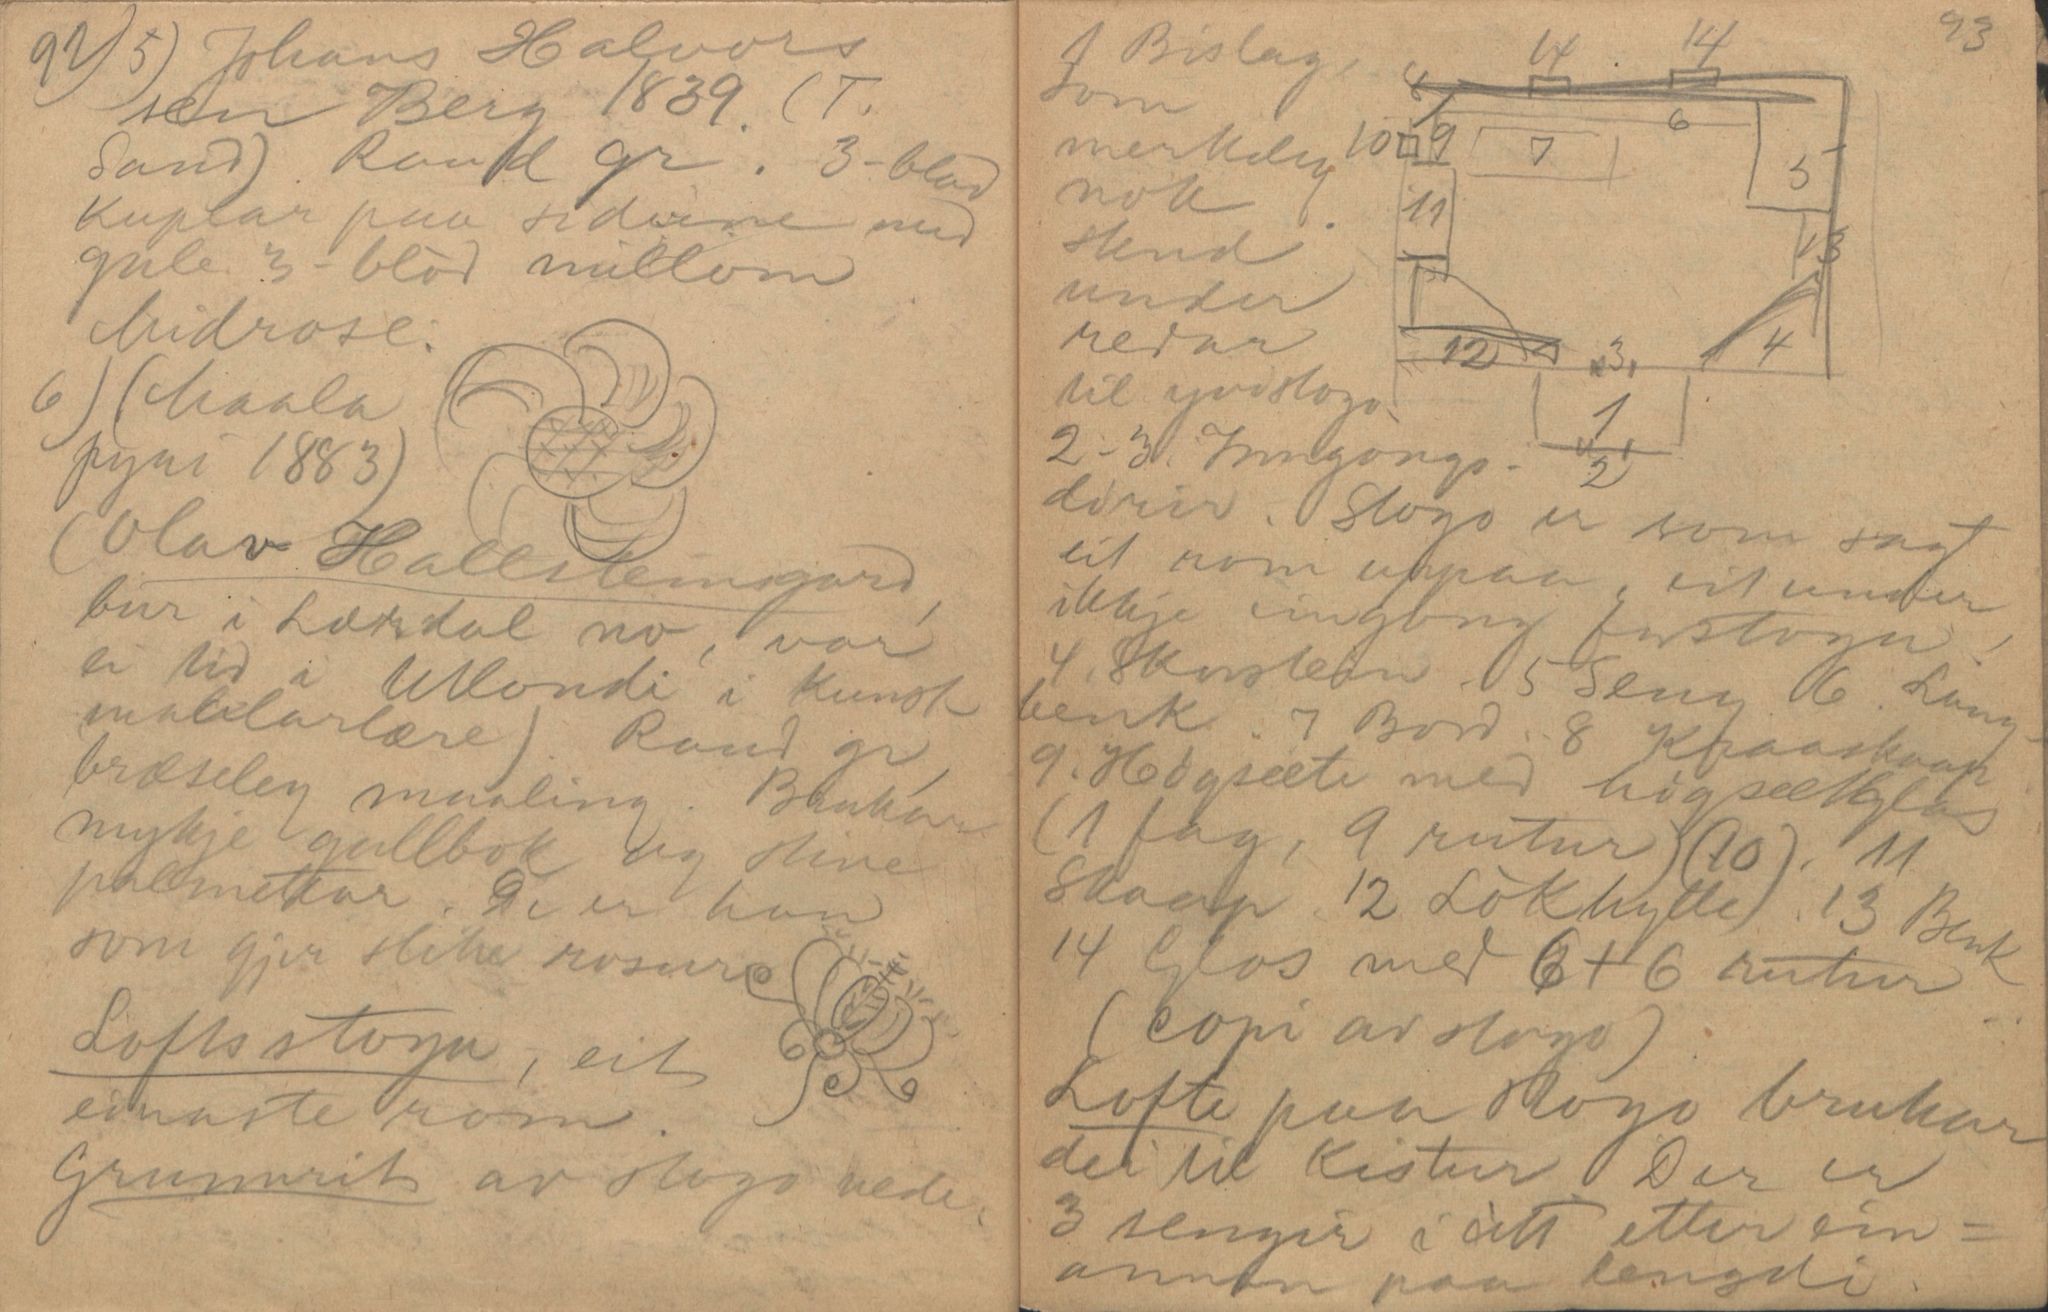 92/ 5) Johans Halvors
sen Berg 1839. (T.
Sand) Raud gr. 3-blad
kuplar paa sidune med
gule 3-blöd millom
Midrose.
6) (Maala
fyri 1883)
(Olav Hallsteinsgard,
bur i Lærdal no, var
ei tid i Utlondi i kunst
malarlære) Raud gr,
bræseleg maaling. Brukar
mykje gullbok og stive
palmettar. De er han
som gjer slike rosur
Loftsstogu, eit
einaste rom.
Grunnrit av stogo nede.
93
1 Bislag,
som
merkeleg
nok
stend
under
redar
til yvistogo.
2-3. Inngongs-
dörir. Stogo er som sagt
eit rom uppaa, eit under
ikkje eingong forstogu.
4. Skorstein. 5 Seng 6. Lang-
benk. 7 Bord. 8 Kraaskaap
9. Högsæte med högsætglas
(1 fag, 9 rutur) (10). 11
Skaap. 12 Lökhytte). 13 Benk
14 Glas med 6+6 rutur
(copi av stogo)
Lofte paa stogo brukar
dei til kistur. Der er
3 sengir i ått etter ein=
annan paa lengdi.
14 14
8 6
10 9 7 5
11 13
12 3 4
1
2